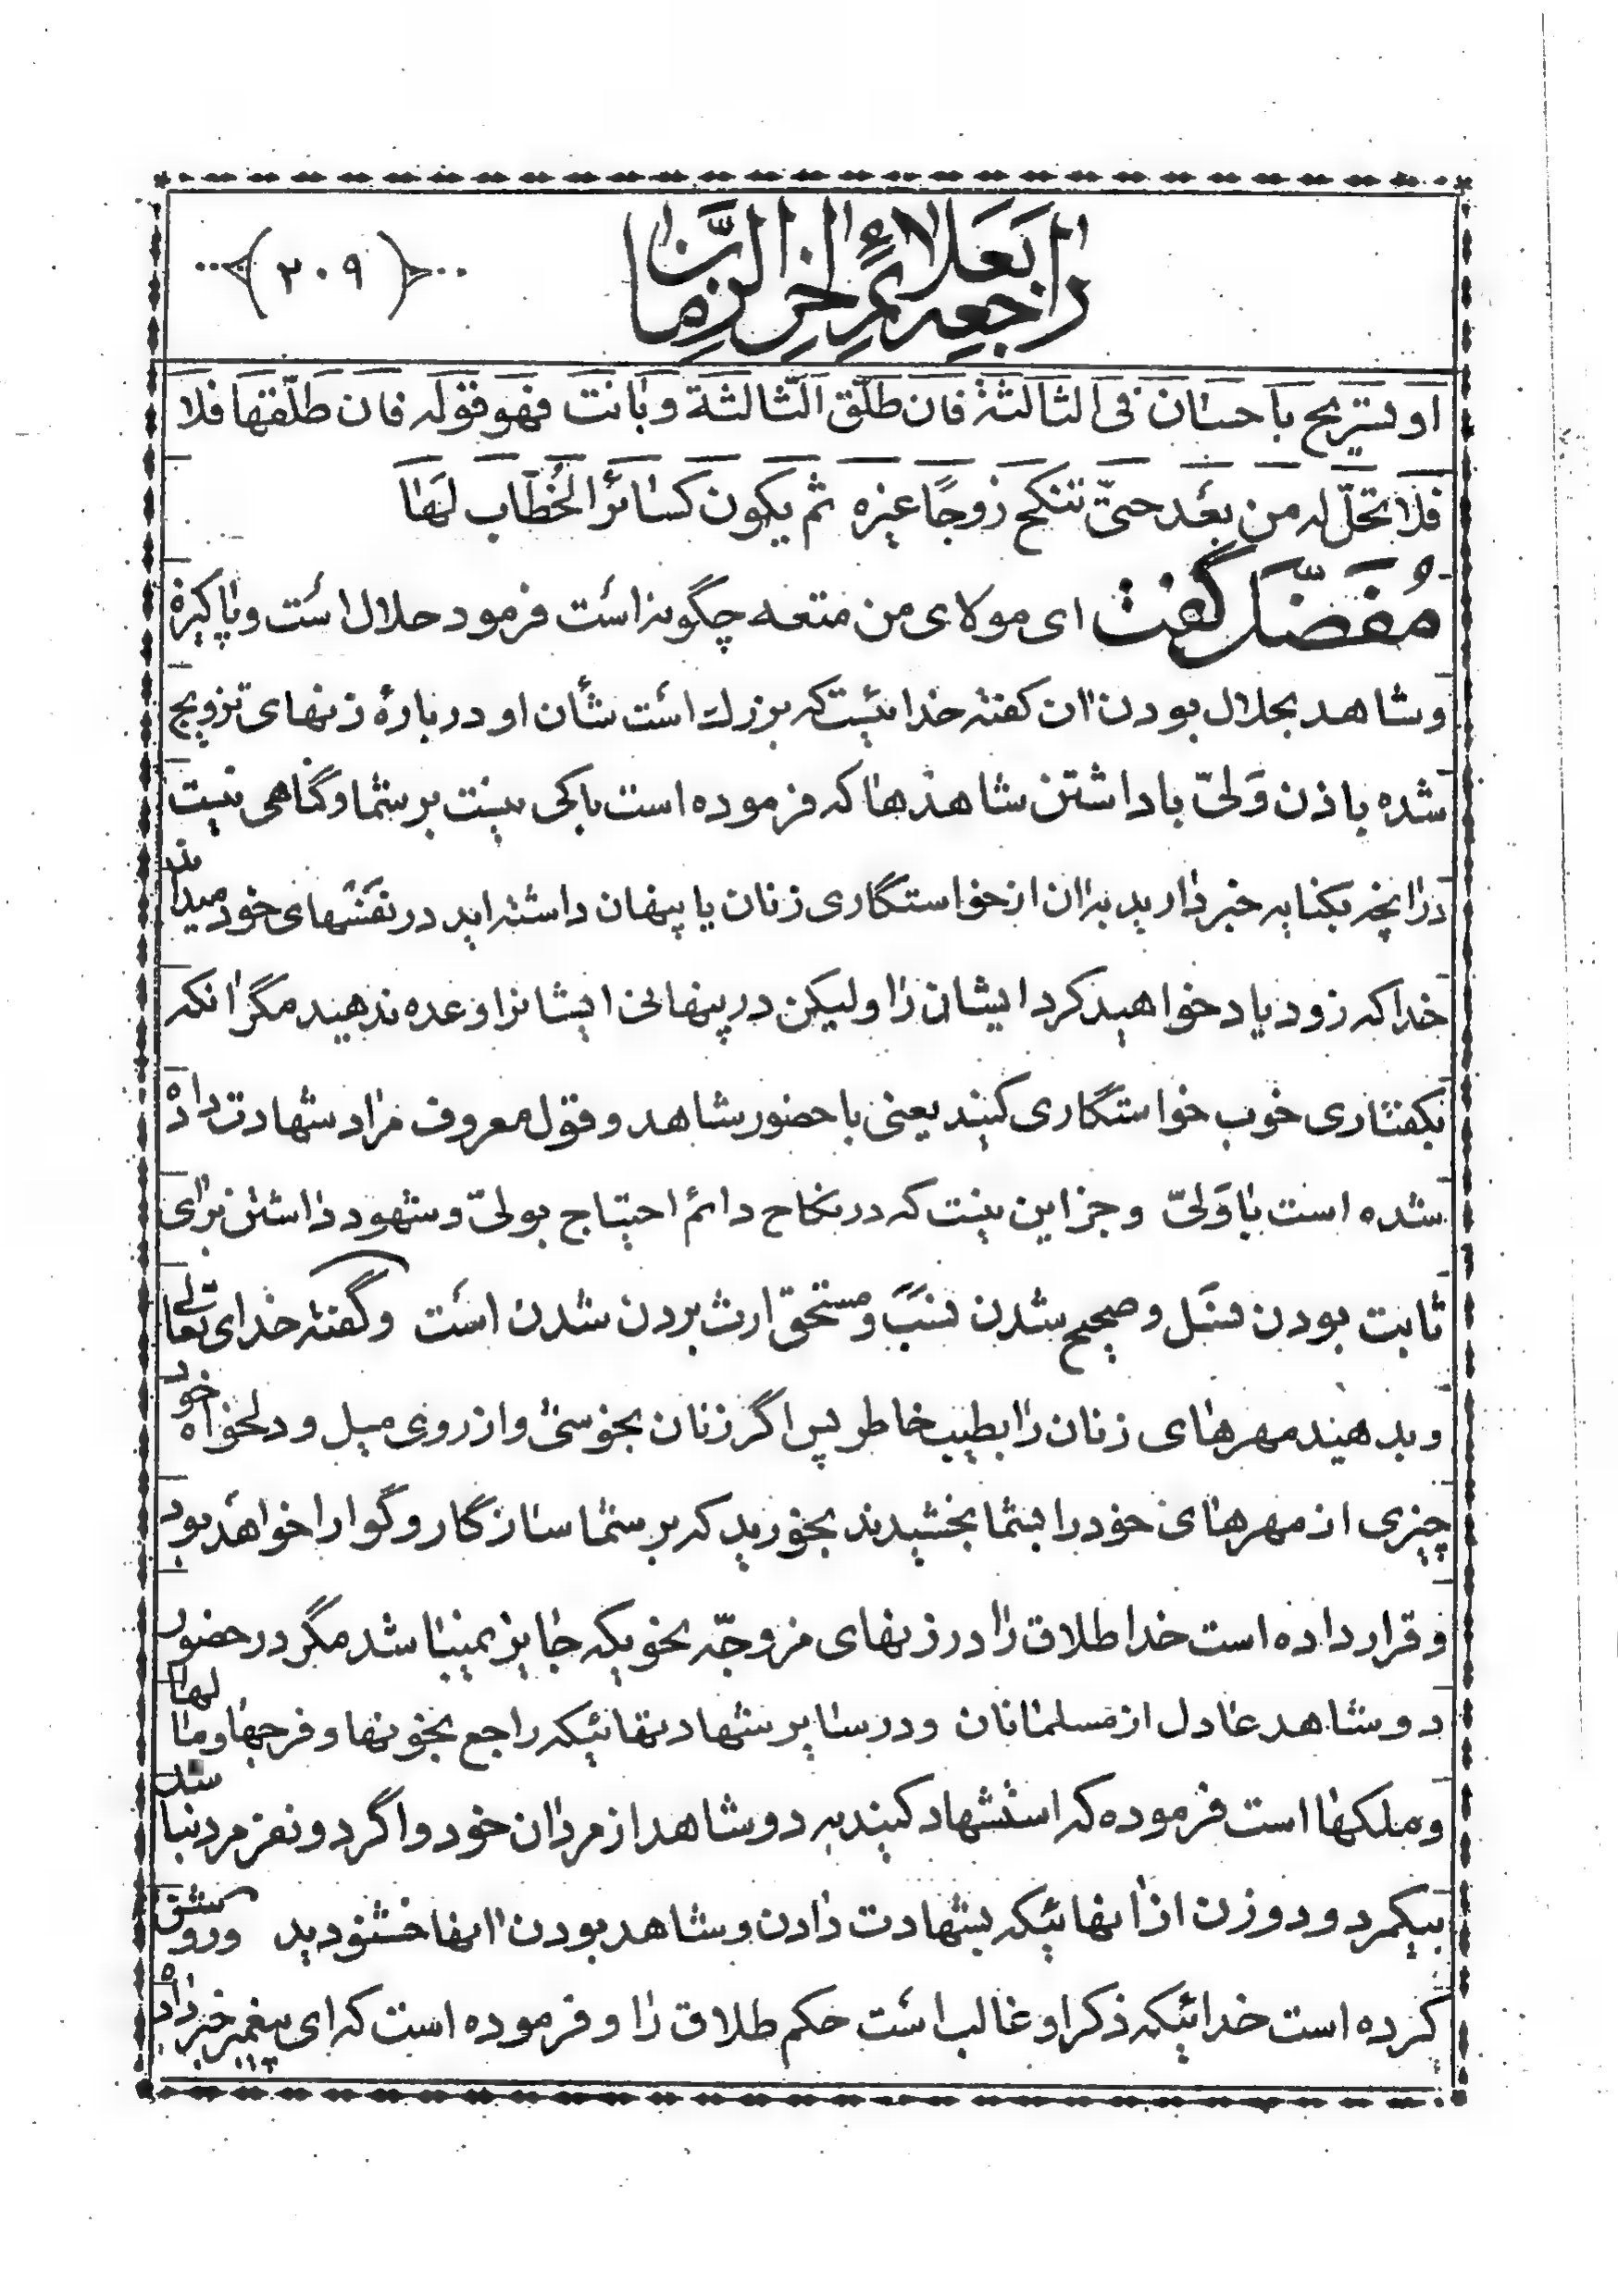 راجعه بعلائم اخر الزمان
﴿ ۲۰۹ ﴾
او تسریح باحسان فی الثالثة فان طلّق الثّالثة و بانت فهو قوله فان طلّقها فلا
فلا تحلّ له من بعد حتّی تنکح زوجًا غیره ثم یکون کسائر الخُطّاب لها
مُفَضَّل گفت ای مولای من متعه چگونه است فرمود حلال است و پاکیزه
و شاهد بحلال بودن ان گفته خدائیست که بزرك است شأن او در بارهٔ زنهای تزویج
شده باذن وَلیّ با داشتن شاهدها که فرموده است باکی نیست بر شما و گناهی نیست
در انچه بکنایه خبر دارید بران از خواستگاری زنان یا پنهان داشته اید در نفسهای خود میداند
خدا که زود یاد خواهید کرد ایشان را ولیکن در پنهانی ایشانرا وعده ندهید مگر انکه
بگفتاری خوب خواستگاری کنید یعنی با حضور شاهد و قول معروف مراد شهادت داده
شده است با وَلیّ و جز این نیست که در نکاح دائم احتیاج بولیّ و شهود داشتن برای
ثابت بودن نسَل و صحیح شدن نسَبَ و مستحق ارث بردن شدن است و گفته خدای تعالی
و بدهید مهرهای زنان را بطیب خاطر پس اگر زنان بخوشی و از روی میل و دلخواه خود
چیزی از مهرهای خود را بشما بخشیدند بخورید که بر شما سازگار و گوارا خواهد بود
و قرار داده است خدا طلاق را در زنهای مزوجّه بخویکه جایز نمیباشد مگر در حضور
دو شاهد عادل از مسلمانان و در سایر شهادتهائیکه راجع بخونها و فرجها و مالها
و ملکها است فرموده که استشهاد کنید به دو شاهد از مردان خود و اگر دو نفر مرد نباشد
بیکمرد و دو زن از انهائیکه بشهادت دادن و شاهد بودن انها خشنودید و روشن
کرده است خدائیکه ذکر او غالب است حکم طلاق را و فرموده است که ای پیغمبر خبر داده